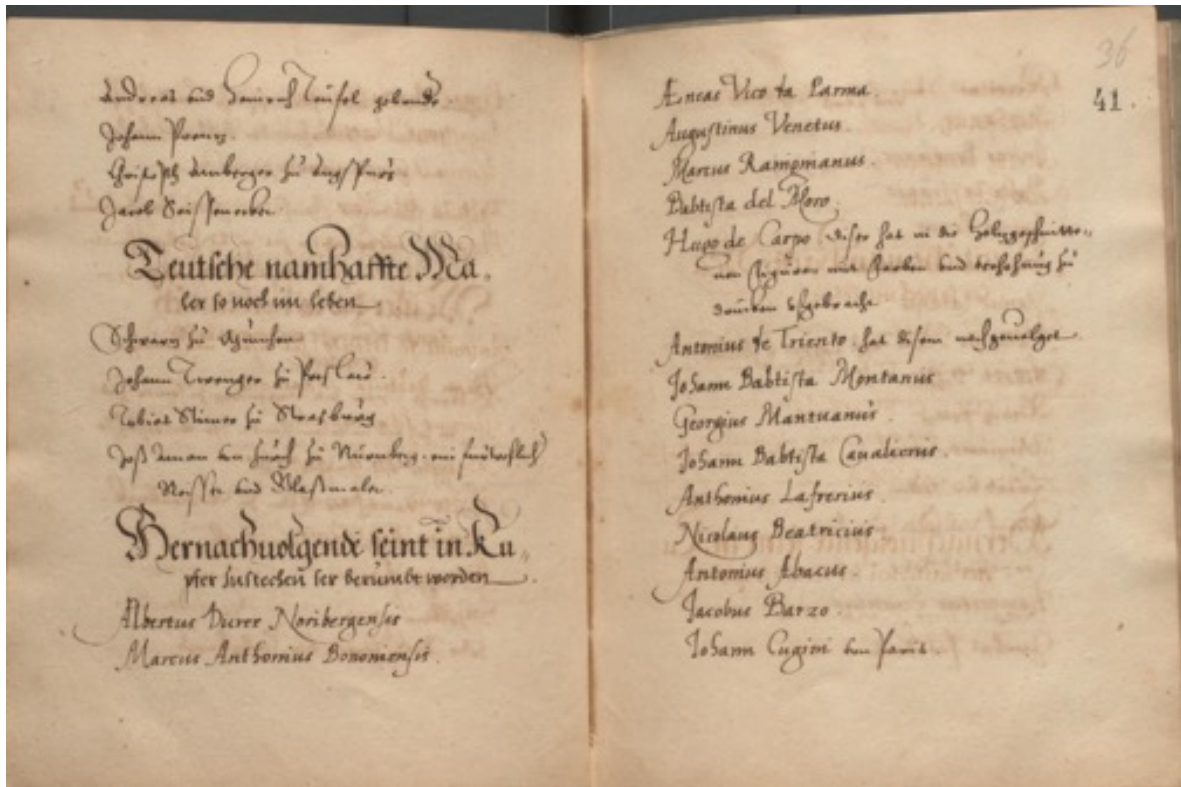 Andreas und Heinrich Teufel gebrueder
Johann
Christoph Amberger zu Augspurg
Jacob Seissenecker
Teutsche namhaffte Ma-
ler so noch im leben
Schwarz zu München
Johann Twenger zu Preslau.
Tobias Stimer zu Strasburg
Jost Aman von Zürch zu Nürmberg. ein
Reisser und Glaßmaler.
Hernachuolgende seint in Ku-
pfer zustechen ser berümbt worden
Albertus Durer Noribergensis
Marcus Anthonius Bononiensis.
36
41.
Æneas Vico da Parma.
Augustinus Venetus.
Marcus Rauignanus.
Babtista del Moro.
Hugo de Carpo diser hat in die Holzgeschnitte-
nen Figuren mit Farben und erhohung zu
drucken
Antonius de Triento hat disem nachgeuolget.
Johann Babtista Montanus
Georgius Mantuanus.
Johann Babtista Caualierius.
Anthonius Lafrerius.
Nicolaus Beatricius.
Antonius Abacus
Jacobus Barzo.
Johann Cugini von Paris.